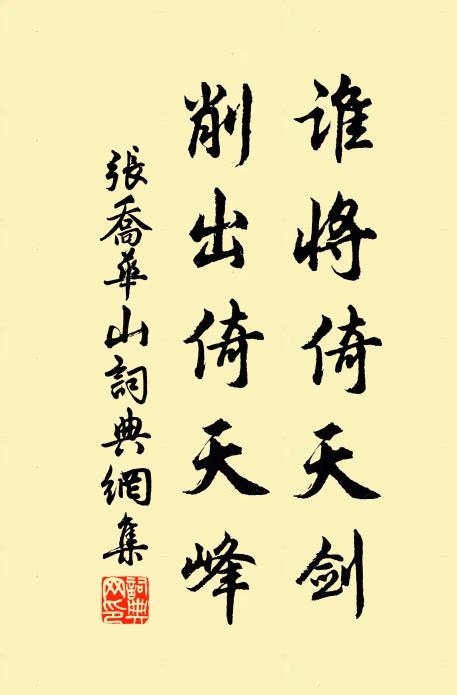 谁将倚天剑
削出倚天峰
張喬華山詞典網集
詞典網印